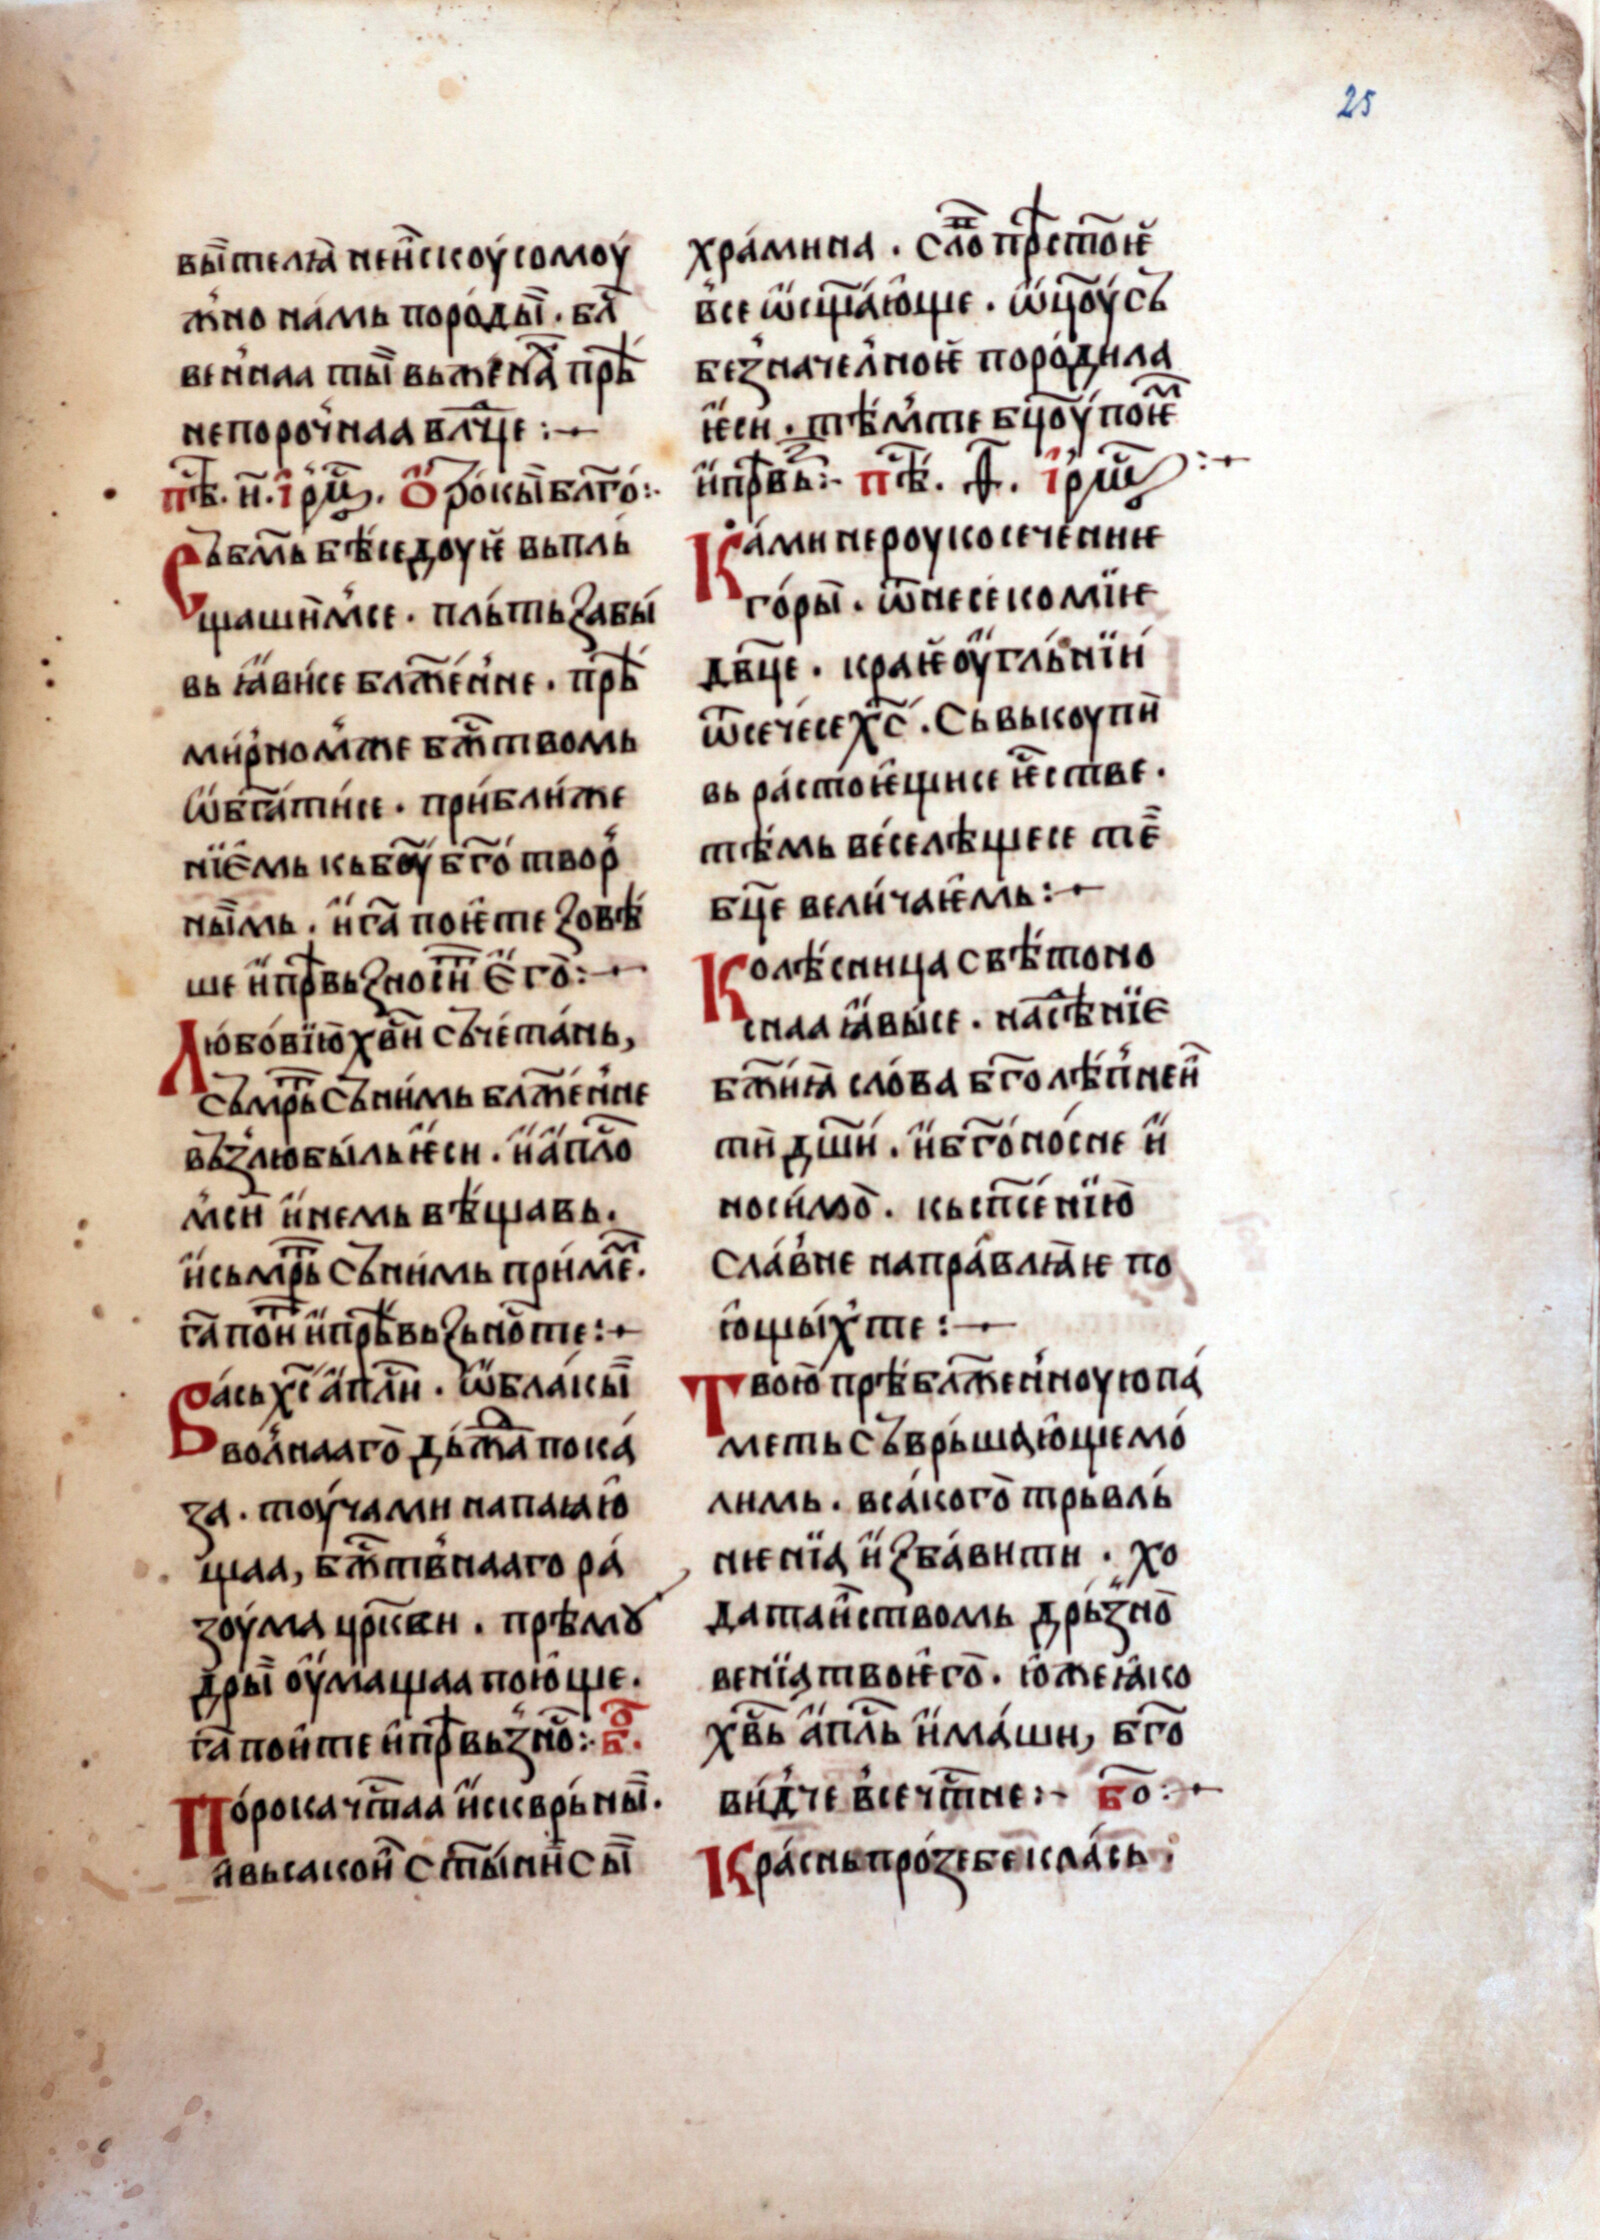 25
вы҃телꙗ неи҃скоу сомоу
жно намь породы҃. бл҃
веннаа ты҃ вь жена҃ прѣ
непорочнаа вл҃це :—
пѣ҃. н҃. ірⷨѡ. Ѻ҃рокы҃ бл҃го :·
Съ бм҃ь бѣседоуѥ вьпль
щашим҃се. пльть забы
вь ꙗвисе блж҃енне. прѣ
мирномже бж҃твомь
ѡбг҃атисе. приближе
ніемь кь боу҃ бг҃отвор
ны҃мь. и га҃ поѥте зовѣ
ше и прѣвьзносит҃ его҃ :—
Любовїю҃ хв҃и съчетань,
съмрт҃ь съ нимь блж҃енне
възлюбыль ѥси. и ап҃ло
мси҃ и немь вѣщавь.
и съмрт҃ь съ нимь прим҃е.
га҃ пои҃ и прѣвьзьно҃те :—
Вась хс҃ ап҃ли. ѡблакы҃
волнааго҃ дьжа҃ пока
за. тоучами напаꙗю
щаа, бж҃твнааго ра
зоума цр҃кви. прѣмꙋ
дры҃ оумащаа поюще.
га҃ поите и прѣвьзно҃ :· б҃.
Порока чт҃аа и скврьны҃.
ꙗвьсакои҃ ст҃ыни҃ сы҃
храмина. сло҃ прѣстоѥ҃
все ѡсщ҃ающе. ѡц҃оу съ
безначелноѥ породила
ѥси. тѣмже бц҃оу поѥм҃
и прѣвь҃ :· пѣ҃. ѳ҃. ірⷨѡ :—
Ками нероукосеченние
горы҃. ѿ несекомїе
дв҃це. краѥоугльнїи
ѿсечесе хс҃. Съвькоупи҃
вь растоѥщисе ѥс҃тве.
тѣмь веселѣщесе те҃
бц҃е величаѥмь :—
Колѣсница свѣтоно
снаа ꙗвысе. насѣ҃нїе
бж҃иꙗ слова бг҃олѣпнеи҃
ти҃ дш҃и. и бг҃оносне и
носимо҃. кь сп҃сенїю҃
славне направлꙗѥ по
ющыхь те :—
Твою҃ прѣблж҃енноую па
меть съврьшающе мо
лимь. всакого҃ трьвль
ненїа избавити. хо
датаи҃ствомь дрьзно҃
венїа твоѥго҃. юже ꙗко
хв҃ь ап҃ль имаши, бг҃о
видче всечт҃не :— бо҃ :—
Краснь прозебе класъ.